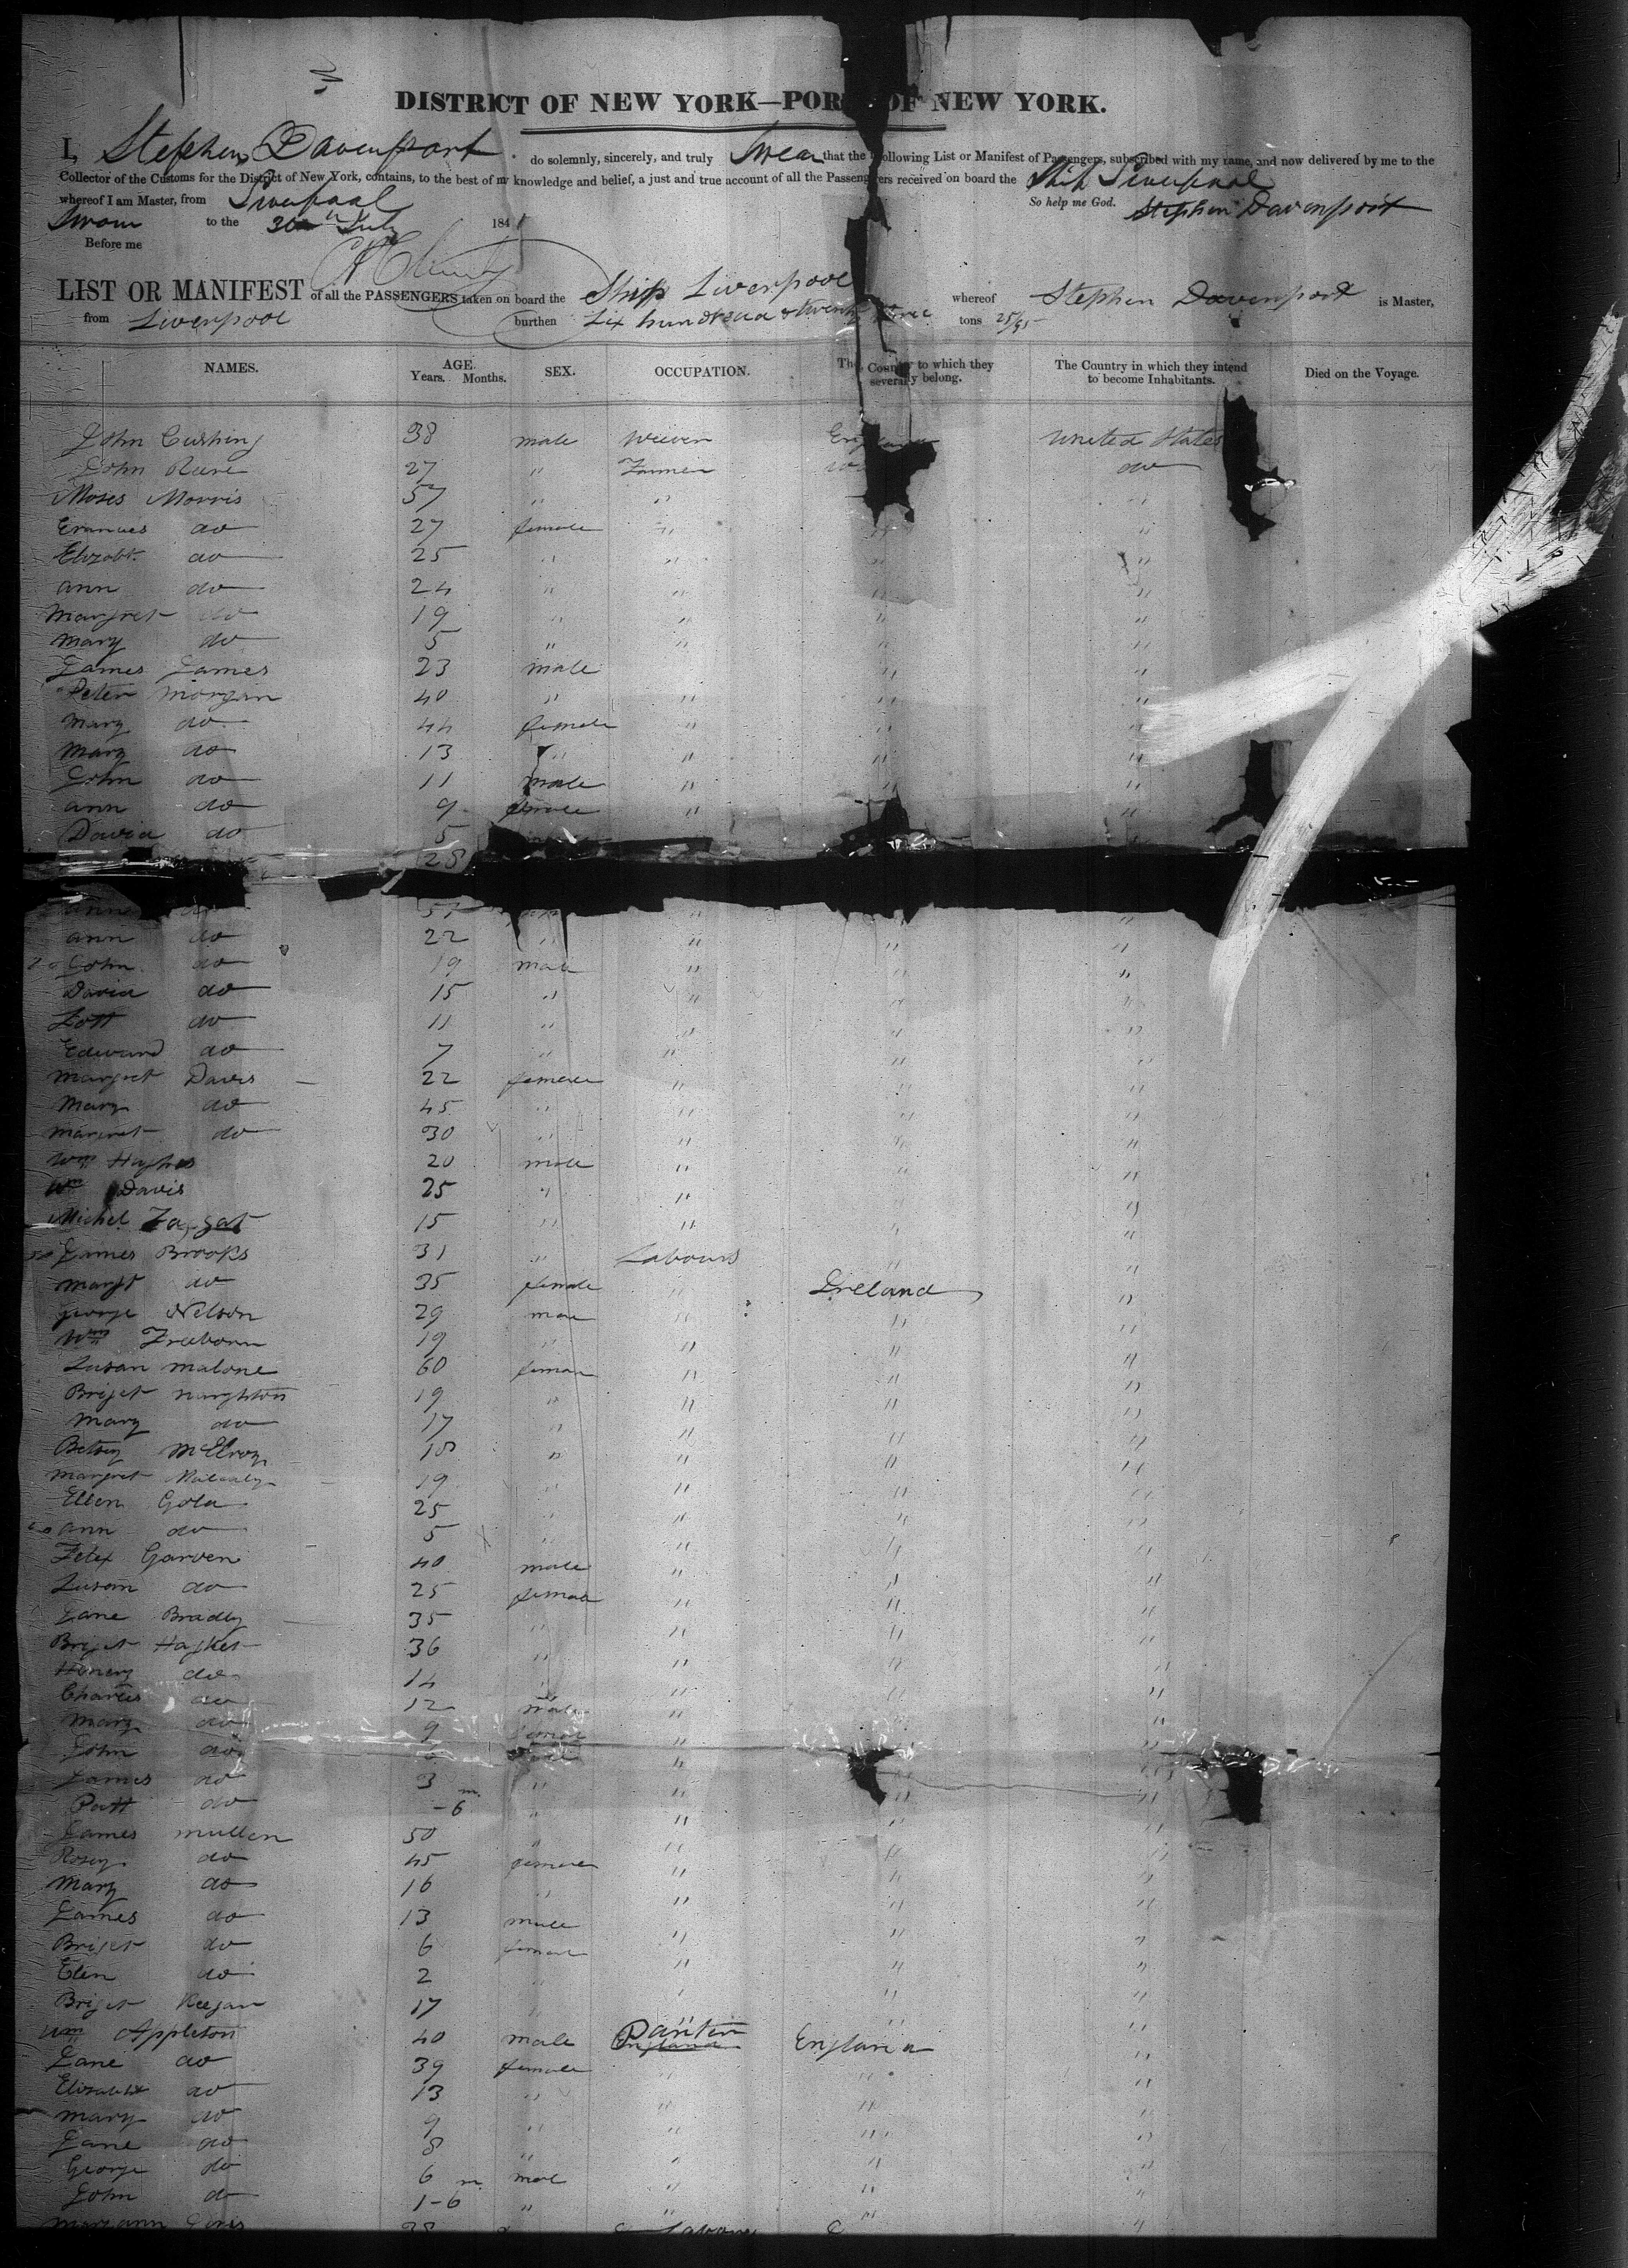 DISTRICT OF NEW YORK—PORT OF NEW YORK.
I, Stephen Davenport do solemnly, sincerely, and truly Swear that the following List or Manifest of Passengers, subscribed with my name, and now delivered by me to the
Collector of the Customs for the District of New York, contains, to the best of my knowledge and belief, a just and true account of all the Passengers received on board the Ship Liverpool
whereof I am Master, from Liverpool So help me God. Stephen Davenport
Sworn to the 30th July 1841
Before me
LIST OR MANIFEST of all the PASSENGERS taken on board the Ship Liverpool whereof Stephen Davenport is Master,
from Liverpool burthen Six hundred & twenty three tons 25/95
NAMES. AGE. Years. Months. SEX. OCCUPATION. The Country to which they severally belong. The Country in which they intend to become Inhabitants. Died on the Voyage.
John Cushing 38 male Weever England United States
John Reere 27 " Farmer do
Moses Morris 57 " " "
do 27 female " "
Elizabt. do 25 " " " "
ann do 24 " " " "
Margret do 19 " " " "
Mary do 5 " " " "
James James 23 male " "
Peter Morgan 40 " " " "
Mary do 44 female " " "
Mary do 13 " " " "
John do 11 male " " "
ann do 9 female " "
David do 5
28
ann 51 " " "
ann do 22 " " " "
John do 19 male " " "
David do 15 " " " "
Lott do 11 " " " "
Edward do 7 " " " "
Margret Davis 22 female " " "
Mary do 45 " " " "
Margret do 30 " " " "
Wm Hughes 20 male " " "
Wm Davis 25 " " " "
Michel 15 " " " "
James Brooks 31 " Labours "
Margt do 35 female " Ireland "
George Nelson 29 male " " "
Wm Freeborn 19 " " " "
Susan Malone 60 female " " "
Brijet Naughton 19 " " " "
Mary do 17 " " " "
Betsey McElroy 18 " " " "
Margret 19 " " " "
Ellen Gola 25 " " " "
ann do 5 " " "
Felex Garven 40 male " " "
Susan do 25 female " " "
Jane Bradly 35 " " " "
Brijet 36 " " " "
Henery do 14 " " "
Charles do 12 male " " "
Mary do 9 female " " "
John do " "
James do 3 " " " "
Patt do - 6 m " " " "
James Mullen 50 " " " "
Rosey do 45 female " " "
Mary do 16 " " " "
James do 13 male " " "
Brijet do 6 female " " "
Elen do 2 " " " "
Brijet Keegan 17 " " " "
Wm Appleton 40 male Painter England "
Jane do 39 female " " "
Elizabeth do 13 " " " "
Mary do 9 " " " "
Jane do 8 " " " "
George do 6 male " " "
John do 1-6 m " " " "
Maryann 38 Labours "